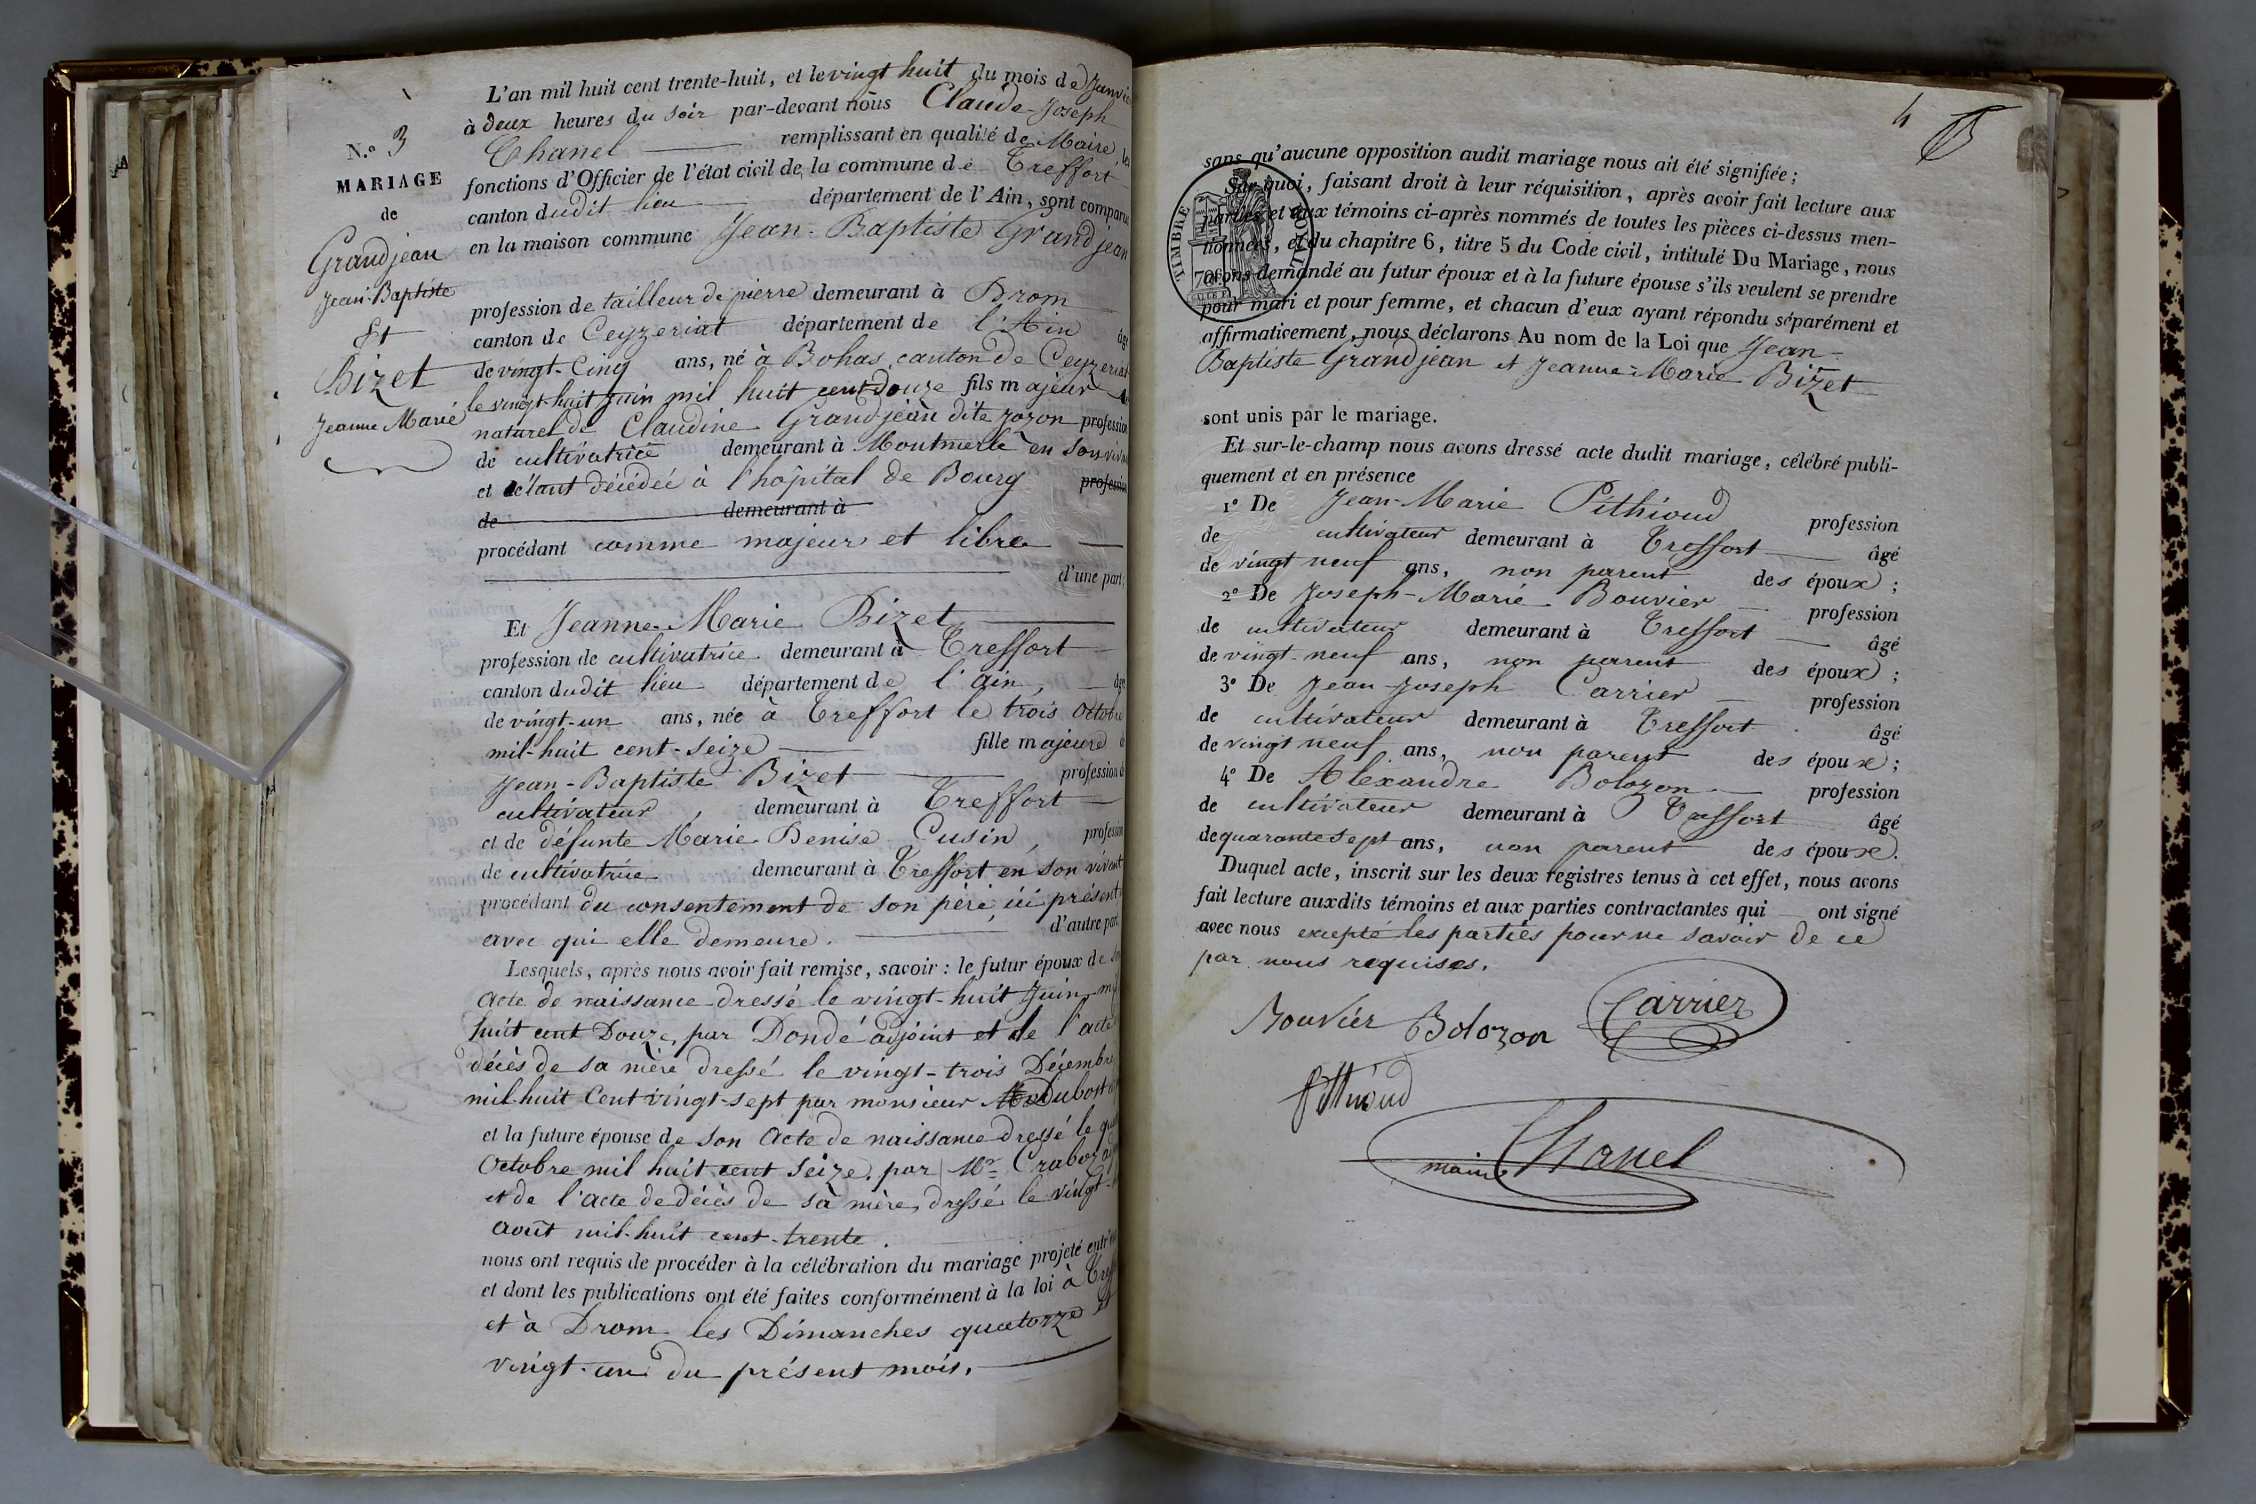 N.o 3
MARIAGE
de
Grandjean
Jean-Baptiste
Et
Bizet
Jeanne Marie
L'an mil huit cent trente-huit, et le vingt huit du mois de Janvie
à deux heures du soir par-devant nous Claude-Joseph
Chanel remplissant en qualité de Maire, les
fonctions d'Officier de l'état civil de la commune de Treffort
canton dudit lieu département de l'Ain, sont comparu
en la maison commune Jean-Baptiste Grandjean
profession de tailleur de pierre demeurant à Drom
canton de Ceyzeriat département de l'Ain âgé
de vingt-Cinq ans, né à Bohas, canton de Ceyzeriat
le vingt-huit Juin mil huit cent douze fils majeur
naturel de Claudine Grandjean dite Jozon profession
de cultivatrice demeurant à Montmerle en son viva
et étant décédée à l'hôpital de Bourg profession
de demeurant à
procédant comme majeur et libre
d'une part;
Et Jeanne-Marie Bizet
profession de cultivatrice demeurant à Treffort
canton dudit lieu département de l'ain, âgé
de vingt-un ans, née à Treffort le trois Octobre
mil-huit cent-seize fille majeure d
Jean-Baptiste Bizet profession d
cultivateur, demeurant à Treffort
et de défunte Marie Denise Cusin, profession
de cultivatrice demeurant à Treffort en son vivant
procédant du consentement de son père, ici présent
avec qui elle demeure. d'autre part.
Lesquels, après nous avoir fait remise, savoir : le futur époux de son
acte de naissance dressé le vingt-huit Juin mil
huit cent Douze, par Dondé adjoint et de l'acte
décès de sa mère dressé le vingt-trois Décembre
mil-huit Cent vingt-sept par monsieur Dubost
et la future épouse de son acte de naissance dressé le
Octobre mil huit cent seize, par Mr Craboz
et de l'acte de décès de sa mère, dressé le vingt-
août mil-huit cent-trente.
nous ont requis de procéder à la célébration du mariage projeté entr'
et dont les publications ont été faites conformément à la loi à Treff
et à Drom les Dimanches quatorze et
vingt-un du présent mois.
4
sans qu'aucune opposition audit mariage nous ait été signifiée;
Sur quoi, faisant droit à leur réquisition, après avoir fait lecture aux
parties et aux témoins ci-après nommés de toutes les pièces ci-dessus men-
tionnées, et du chapitre 6, titre 5 du Code civil, intitulé Du Mariage, nous
avons demandé au futur époux et à la future épouse s'ils veulent se prendre
pour mari et pour femme, et chacun d'eux ayant répondu séparément et
affirmativement, nous déclarons Au nom de la Loi que Jean-
Baptiste Grandjean et Jeanne-Marie Bizet
sont unis par le mariage.
Et sur-le-champ nous avons dressé acte dudit mariage, célébré publi-
quement et en présence
1o De Jean-Marie Pithioud profession
de cultivateur demeurant à Treffort âgé
de vingt neuf ans, non parent des époux;
2o De Joseph-Marie Bouvier profession
de cultivateur demeurant à Treffort âgé
de vingt-neuf ans, non parent des époux;
3o De Jean-Joseph Carrier profession
de cultivateur demeurant à Treffort âgé
de vingt neuf ans, non parent des époux;
4o De Alexandre Bolozon profession
de cultivateur demeurant à Treffort âgé
de quarante sept ans, non parent des époux.
Duquel acte, inscrit sur les deux registres tenus à cet effet, nous avons
fait lecture auxdits témoins et aux parties contractantes qui ont signé
avec nous excepté les parties pour ne savoir de ce
par nous requises.
Bouvier Bolozon Carrier
Pithioud
maire Chanel
TIMBRE ROYAL